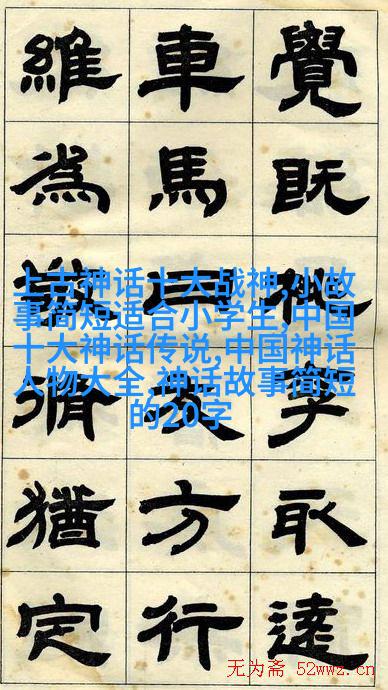 覺既取
車馬方行
維為猶定
上古神话十大战神,小故
事简短适合小学生,中国
十大神话传说,中国神话
人物大全,神话故事简短
的20字
无为斋 52wwz.cn